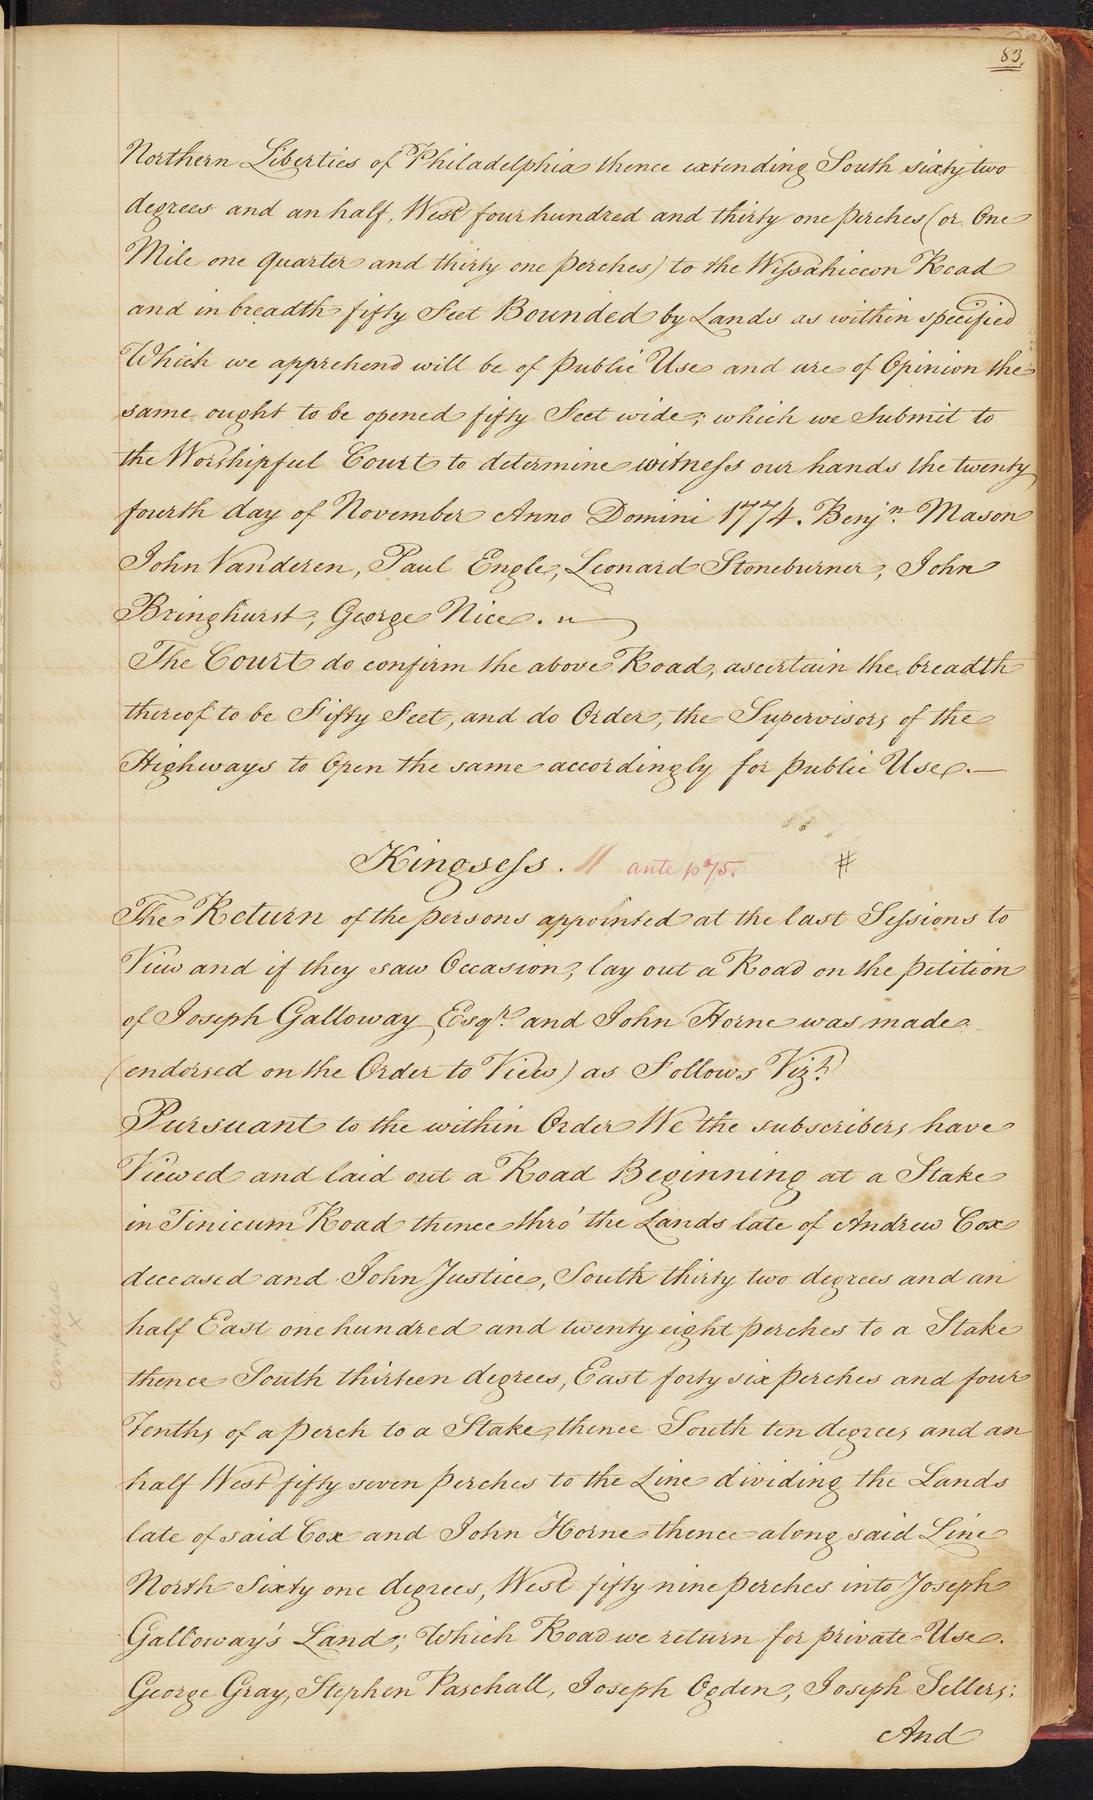 83,
Northern Liberties of Philadelphia thence extending South sixty two
degrees and an half, West four hundred and thirty one perches (or One
Mile one quarter and thirty one perches) to the Wissahiccon Road
and in breadth fifty Feet Bounded by Lands as within specified
Which we apprehend will be of Public Use and are of Opinion the
same ought to be opened fifty Feet wide; which we Submit to
the Worshipful Court to determine witness our hands the twenty
fourth day of November Anno Domini 1774. Benjn. Mason
John Vanderen, Paul Engle, Leonard Stoneburner, John
Bringhurst, George Nice.
The Court do confirm the above Road, ascertain the breadth
thereof to be Fifty Feet, and do Order, the Supervisors of the
Highways to Open the same accordingly for public Use.—
Kingsess. // ante pa 75. #
The Return of the persons appointed at the last Sessions to
View and if they saw Occasion, lay out a Road on the petition
of Joseph Galloway Esqr. and John Horne was made
(endorsed on the Order to View) as Follows Vizt.
Pursuant to the within Order We the subscribers have
Viewed and laid out a Road Beginning at a Stake
in Tinicum Road thence thro' the Lands late of Andrew Cox
deceased and John Justice, South thirty two degrees and an
half East one hundred and twenty eight perches to a Stake
thence South thirteen degrees, East forty six perches and four
Tenths of a perch to a Stake, thence South ten degrees and an
half West fifty seven perches to the Line dividing the Lands
late of said Cox and John Horne thence along said Line
North Sixty one degrees, West fifty nine perches into Joseph
Galloway's Land; Which Road we return for private Use.
George Gray, Stephen Paschall, Joseph Ogden, Joseph Sellers;
And
compiled
x